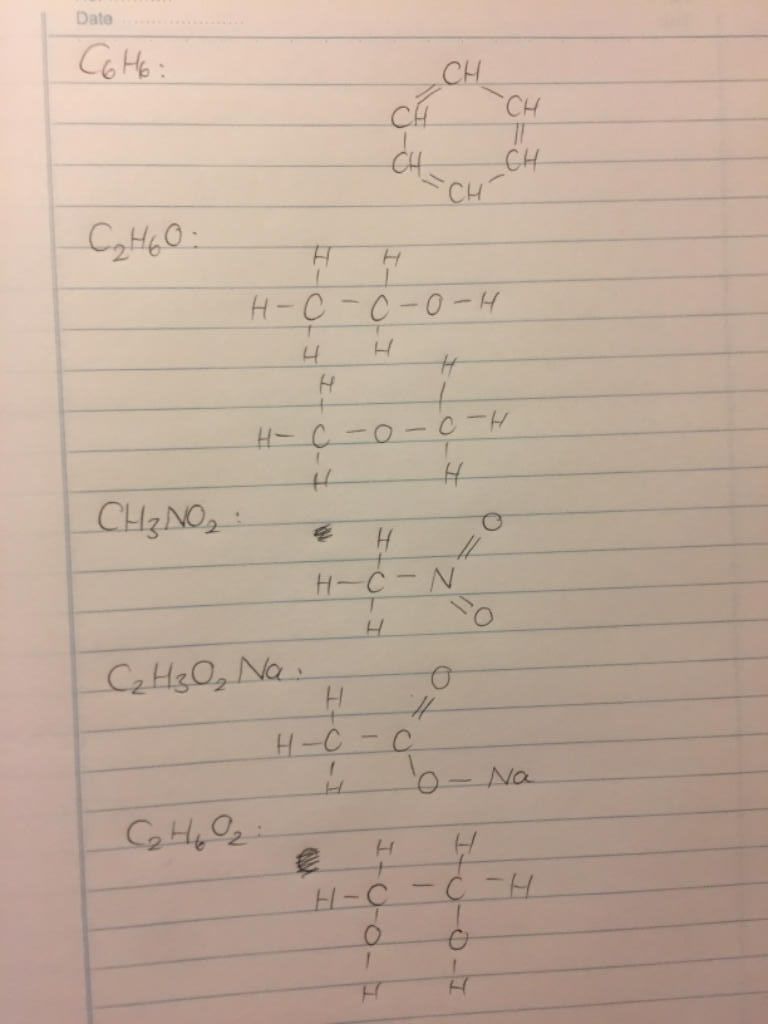 Date
C6H6:
CH
CH CH
CH CH
CH
C2H6O:
H H
H-C-C-O-H
H H
H H
H-C-O-C-H
H H
CH3NO2:
H O
H-C-N
H O
C2H3O2Na:
H O
H-C-C
H O-Na
C2H6O2:
H H
H-C-C-H
O O
H H